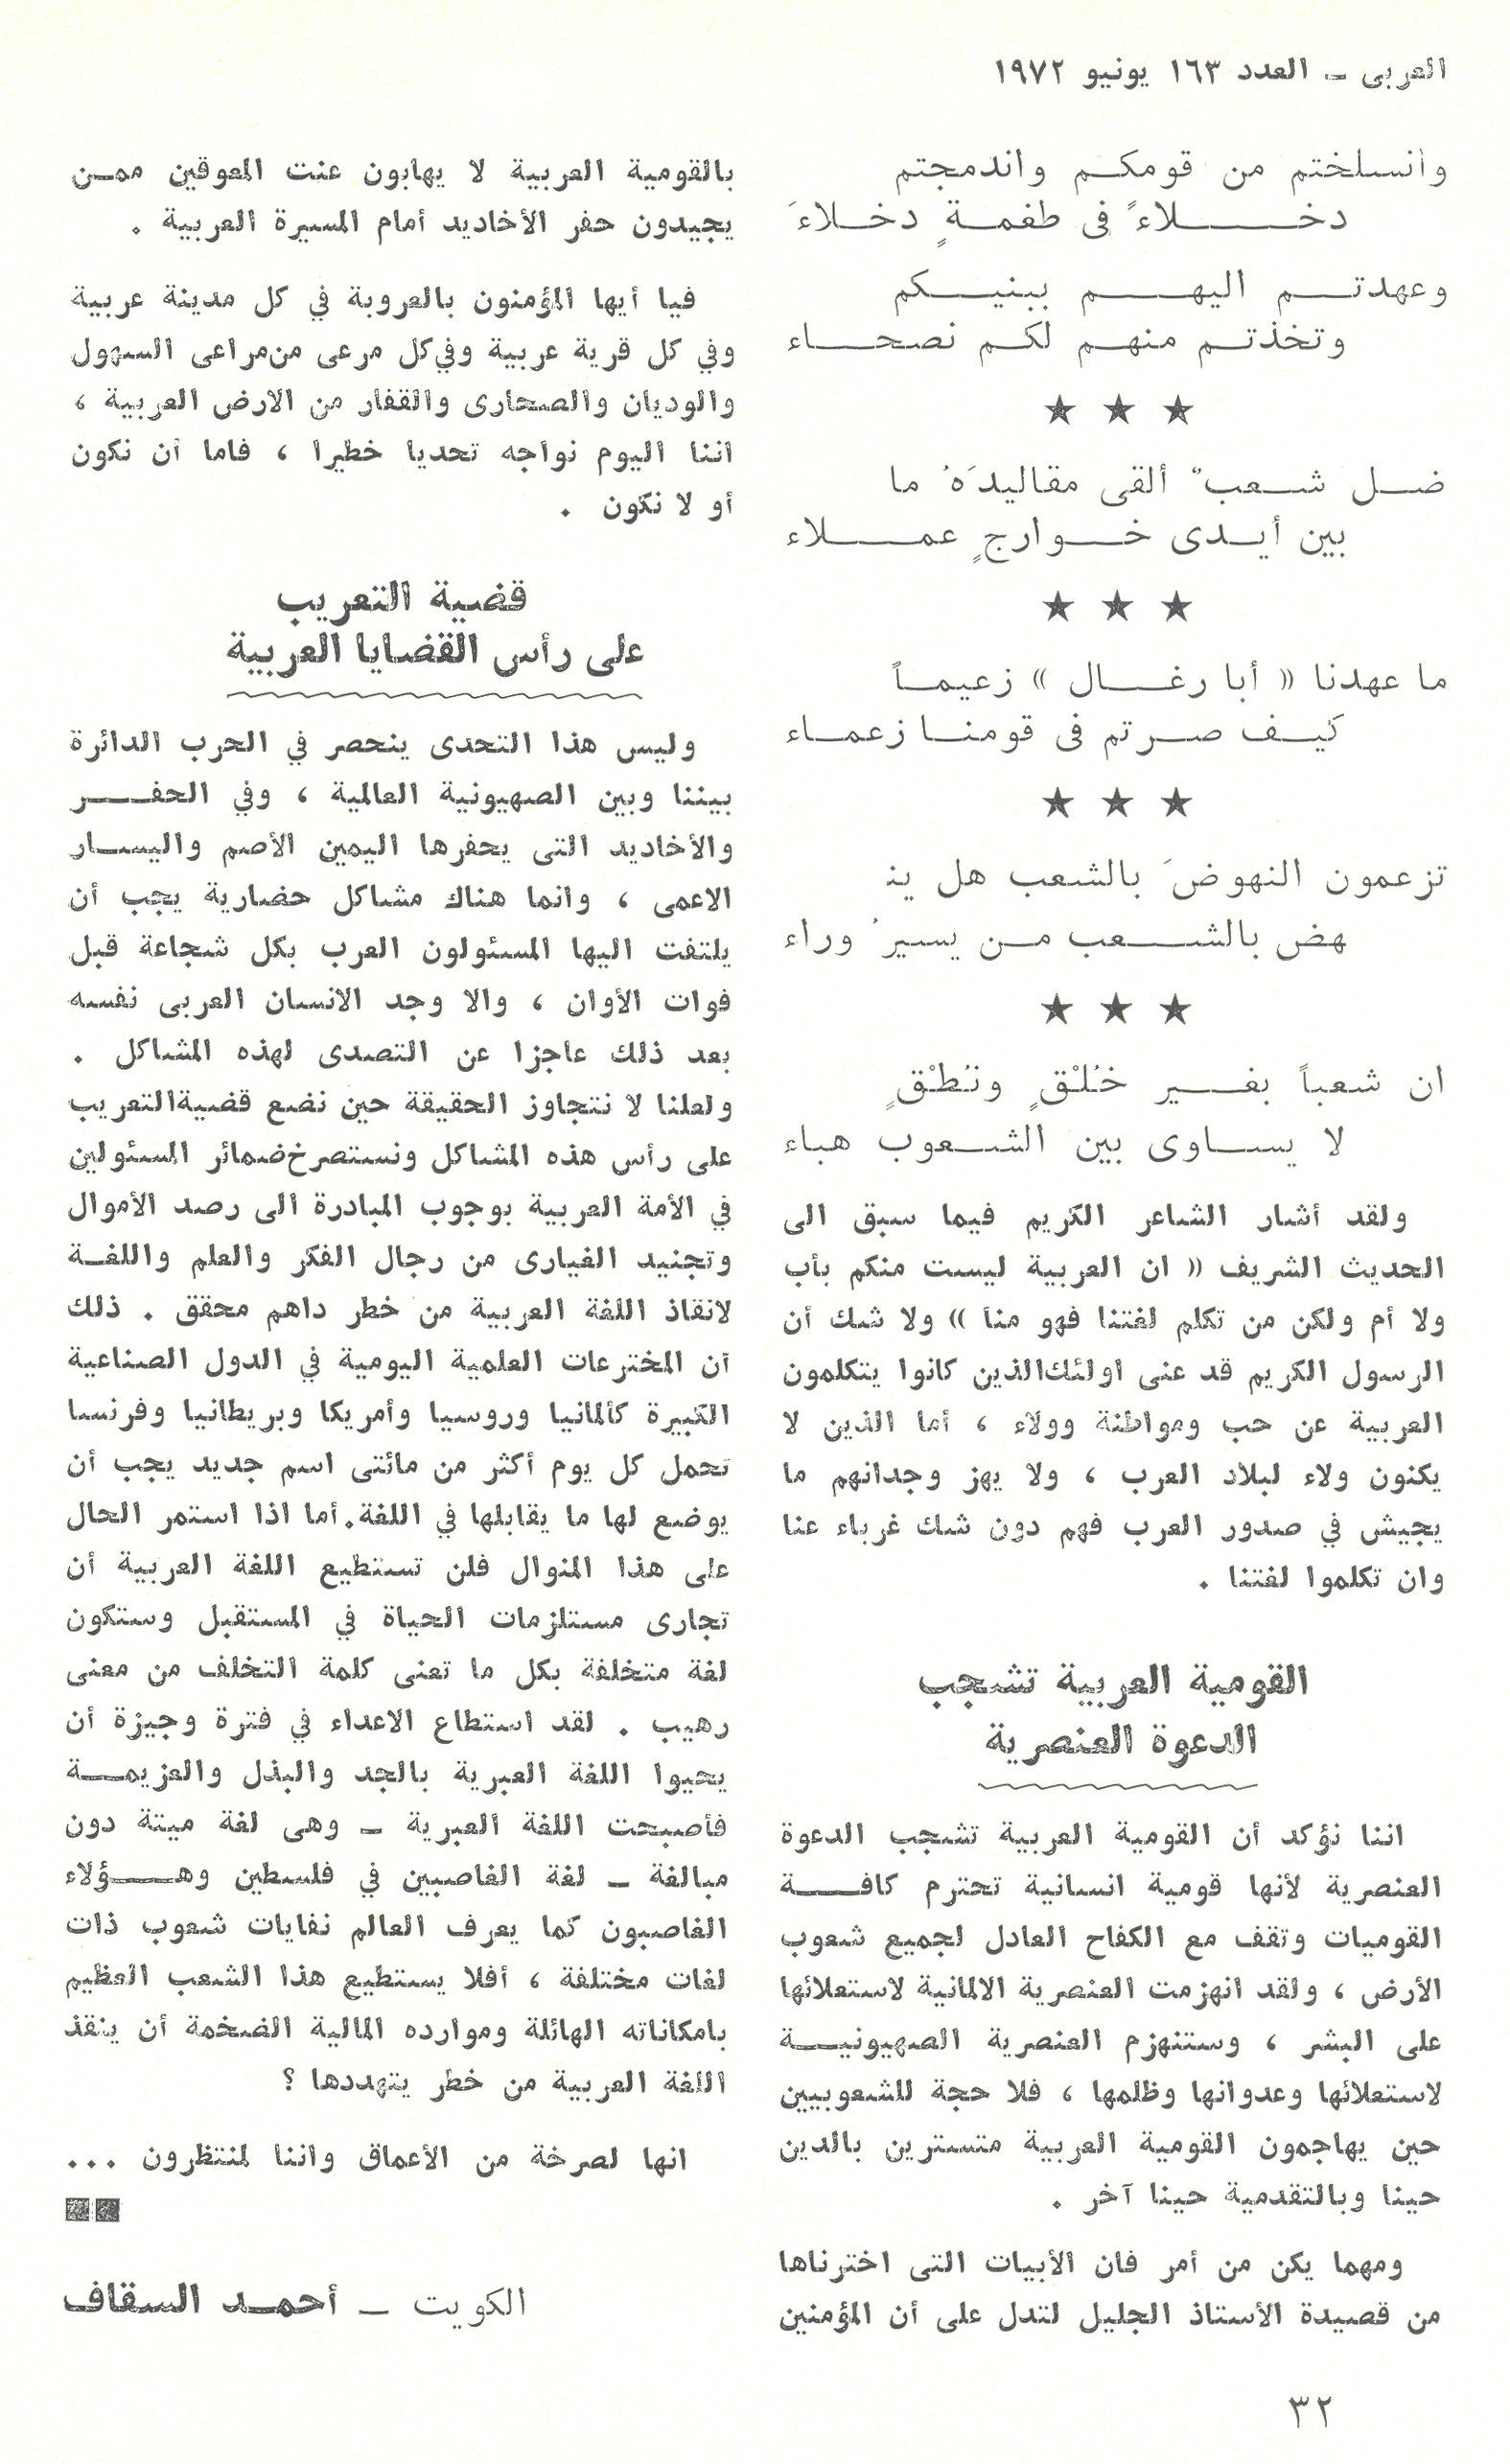 العربى ــ العدد ١٦٣ يونيو ١٩٧٢
وانسلختم من قومكم واندمجتم
دخلاءً فى طغمةٍ دخلاءَ
وعهدتم اليهم ببنيكم
وتخذتم منهم لكم نصحاء
★ ★ ★
ضل شعبٌ ألقى مقاليدَهُ ما
بين أيدى خوارجٍ عملاء
★ ★ ★
ما عهدنا « أبا رغال » زعيماً
كيف صرتم فى قومنا زعماء
★ ★ ★
تزعمون النهوضَ بالشعب هل ينـ
ـهض بالشعب من يسيرُ وراء
★ ★ ★
ان شعباً بغير خُلْقٍ ونُطْقٍ
لا يساوى بين الشعوب هباء
ولقد أشار الشاعر الكريم فيما سبق الى
الحديث الشريف « ان العربية ليست منكم بأب
ولا أم ولكن من تكلم لغتنا فهو منا » ولا شك أن
الرسول الكريم قد عنى اولئك الذين كانوا يتكلمون
العربية عن حب ومواطنة وولاء ، أما الذين لا
يكنون ولاء لبلاد العرب ، ولا يهز وجدانهم ما
يجيش في صدور العرب فهم دون شك غرباء عنا
وان تكلموا لغتنا .
القومية العربية تشجب
الدعوة العنصرية
اننا نؤكد أن القومية العربية تشجب الدعوة
العنصرية لأنها قومية انسانية تحترم كافة
القوميات وتقف مع الكفاح العادل لجميع شعوب
الأرض ، ولقد انهزمت العنصرية الالمانية لاستعلائها
على البشر ، وستنهزم العنصرية الصهيونية
لاستعلائها وعدوانها وظلمها ، فلا حجة للشعوبيين
حين يهاجمون القومية العربية متسترين بالدين
حينا وبالتقدمية حينا آخر .
ومهما يكن من أمر فان الأبيات التى اخترناها
من قصيدة الأستاذ الجليل لتدل على أن المؤمنين
بالقومية العربية لا يهابون عنت المعوقين ممن
يجيدون حفر الأخاديد أمام المسيرة العربية .
فيا أيها المؤمنون بالعروبة في كل مدينة عربية
وفي كل قرية عربية وفي كل مرعى من مراعى السهول
والوديان والصحارى والقفار من الارض العربية ،
اننا اليوم نواجه تحديا خطيرا ، فاما أن نكون
أو لا نكون .
قضية التعريب
على رأس القضايا العربية
وليس هذا التحدى ينحصر في الحرب الدائرة
بيننا وبين الصهيونية العالمية ، وفي الحفر
والأخاديد التى يحفرها اليمين الأصم واليسار
الاعمى ، وانما هناك مشاكل حضارية يجب أن
يلتفت اليها المسئولون العرب بكل شجاعة قبل
فوات الأوان ، والا وجد الانسان العربى نفسه
بعد ذلك عاجزا عن التصدى لهذه المشاكل .
ولعلنا لا نتجاوز الحقيقة حين نضع قضية التعريب
على رأس هذه المشاكل ونستصرخ ضمائر المسئولين
في الأمة العربية بوجوب المبادرة الى رصد الأموال
وتجنيد الغيارى من رجال الفكر والعلم واللغة
لانقاذ اللغة العربية من خطر داهم محقق . ذلك
أن المخترعات العلمية اليومية في الدول الصناعية
الكبيرة كألمانيا وروسيا وأمريكا وبريطانيا وفرنسا
تحمل كل يوم أكثر من مائتى اسم جديد يجب أن
يوضع لها ما يقابلها في اللغة. أما اذا استمر الحال
على هذا المنوال فلن تستطيع اللغة العربية أن
تجارى مستلزمات الحياة في المستقبل وستكون
لغة متخلفة بكل ما تعنى كلمة التخلف من معنى
رهيب . لقد استطاع الاعداء في فترة وجيزة أن
يحيوا اللغة العبرية بالجد والبذل والعزيمة
فأصبحت اللغة العبرية ــ وهى لغة ميتة دون
مبالغة ــ لغة الغاصبين في فلسطين وهؤلاء
الغاصبون كما يعرف العالم نفايات شعوب ذات
لغات مختلفة ، أفلا يستطيع هذا الشعب العظيم
بامكاناته الهائلة وموارده المالية الضخمة أن ينقذ
اللغة العربية من خطر يتهددها ؟
انها لصرخة من الأعماق واننا لمنتظرون ...
الكويت ــ أحمد السقاف
٣٢